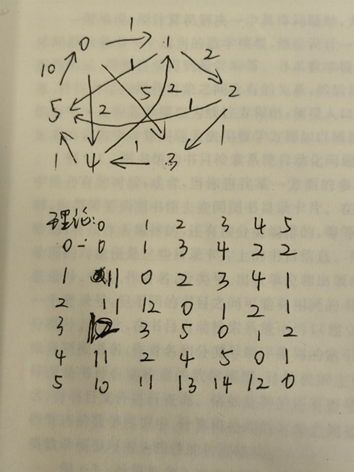 1
0 1 2
10
5 2 1 2
5 2
1 1
1 4 3
理论: 0 1 2 3 4 5
0: 0 1 3 4 2 2
1 11 0 2 3 4 1
2 11 12 0 1 2 1
3 12 3 5 0 1 2
4 11 2 4 5 0 1
5 10 11 13 14 12 0